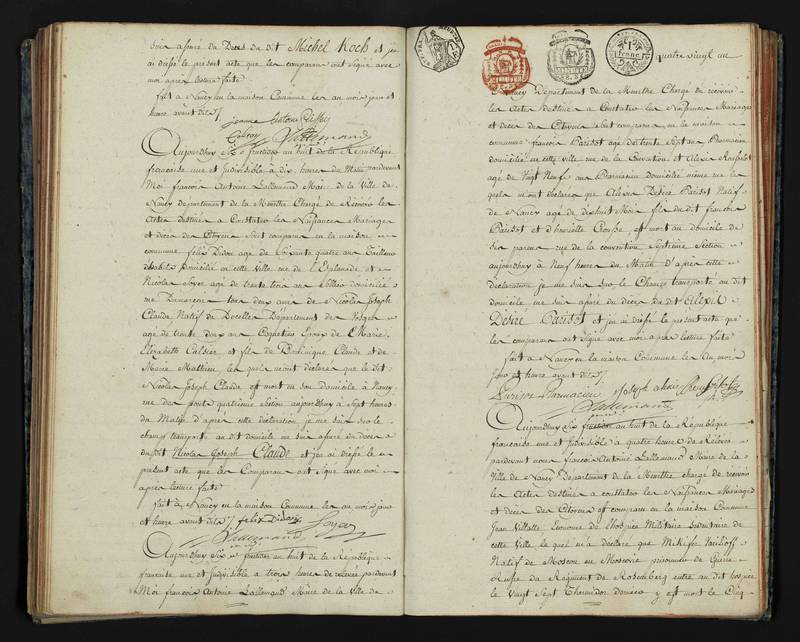 Suis assuré du Deces du dit Michel Koch et j'ai
ai dressé le present acte que les comparans ont signé avec
moi après lecture faite
fait a Nancy en la maison Commune les an mois jour et
heure avant dits
Jeanne Antoine
Lallemand
Aujourdhuy Six fructidor an huit de la République
française une et Indivisible à dix heures du Matin pardevant
Moi françois Antoine Lallemand Maire de la Ville de
Nancy département de la Meurthe Chargé de Recevoir les
Actes destinés a Constater les Naissances Mariages
et décès des Citoyens Sont comparus en la maison
commune felix Didon agé de Soixante quatre ans Tailleur
dhabits domicilié en cette Ville rue de l'Esplanade et
Nicolas Loyer agé de trente trois ans domicilié
rue de Nicolas Joseph
Claude Natif de Département des Vosges
agé de trente deux ans Epoux de Marie
Elizabeth et fils de Dominique Claude et de
Marie Matthieu les quels m'ont déclaré que le dit
Nicolas Joseph Claude est mort en son domicile à Nancy
rue des ponts quatrième Section aujourdhuy à Sept heures
du Matin d'après cette déclaration je me suis sur le
champ transporté au dit domicile me suis assuré du décès
du dit Nicolas Joseph Claude et j'ai dressé le
present acte que les Comparans ont signé avec moi
après lecture faite
fait à Nancy en la maison Commune les an mois jour
et heure avant dits felix Didon
Loyer
Lallemand
Aujourdhuy Six fructidor an huit de la République
française une et Indivisible a trois heures de relevée pardevant
Moi françois Antoine Lallemand Maire de la Ville de
quatre vingt un
1 franc
Nancy Département de la Meurthe Chargé de recevoir
les Actes destinés a Constater les Naissances Mariages
et décès des Citoyens Sont comparus en la maison
commune françois Parisot agé de trente Sept ans Pharmacien
domicilié en cette ville rue de la Convention et Alexis
agé de Vingt Neuf ans Pharmacien domicilié même rue les
quels m'ont declarés que Alexis Desiré Parisot Natif
de Nancy agé de dixhuit Mois fils du dit françois
Parisot et d'henriette est mort au domicile de
ses parens rue de la convention Septième Section
aujourdhuy à Neuf heures du Matin d'après cette
déclaration je me suis sur le Champ transporté au dit
domicile me suis assuré du décès du dit Alexis
Desiré Parisot et j'ai dressé le present acte que
les comparans ont signé avec moi après lecture faite
fait à Nancy en la maison Commune les an mois
jour et heure avant dits
Parisot Pharmacien
Lallemand
Aujourdhuy Six fructidor an huit de la République
française une et Indivisible a quatre heures de Relevée
pardevant nous françois Antoine Lallemand Maire de la
Ville de Nancy Département de la Meurthe chargé de recevoir
les Actes destinés a constater les Naissances Mariages
et décès des Citoyens est comparu en la maison Commune
Jean Villatte Econome de l'hospice Militaire Sedentaire de
cette Ville le quel m'a déclaré que Vasilioff
Natif de Moscou en Moscovie prisonnier de Guerre
Russe du Regiment de Rosemberg entré au dit hospice
le Vingt Sept Thermidor dernier y est mort le Cinq